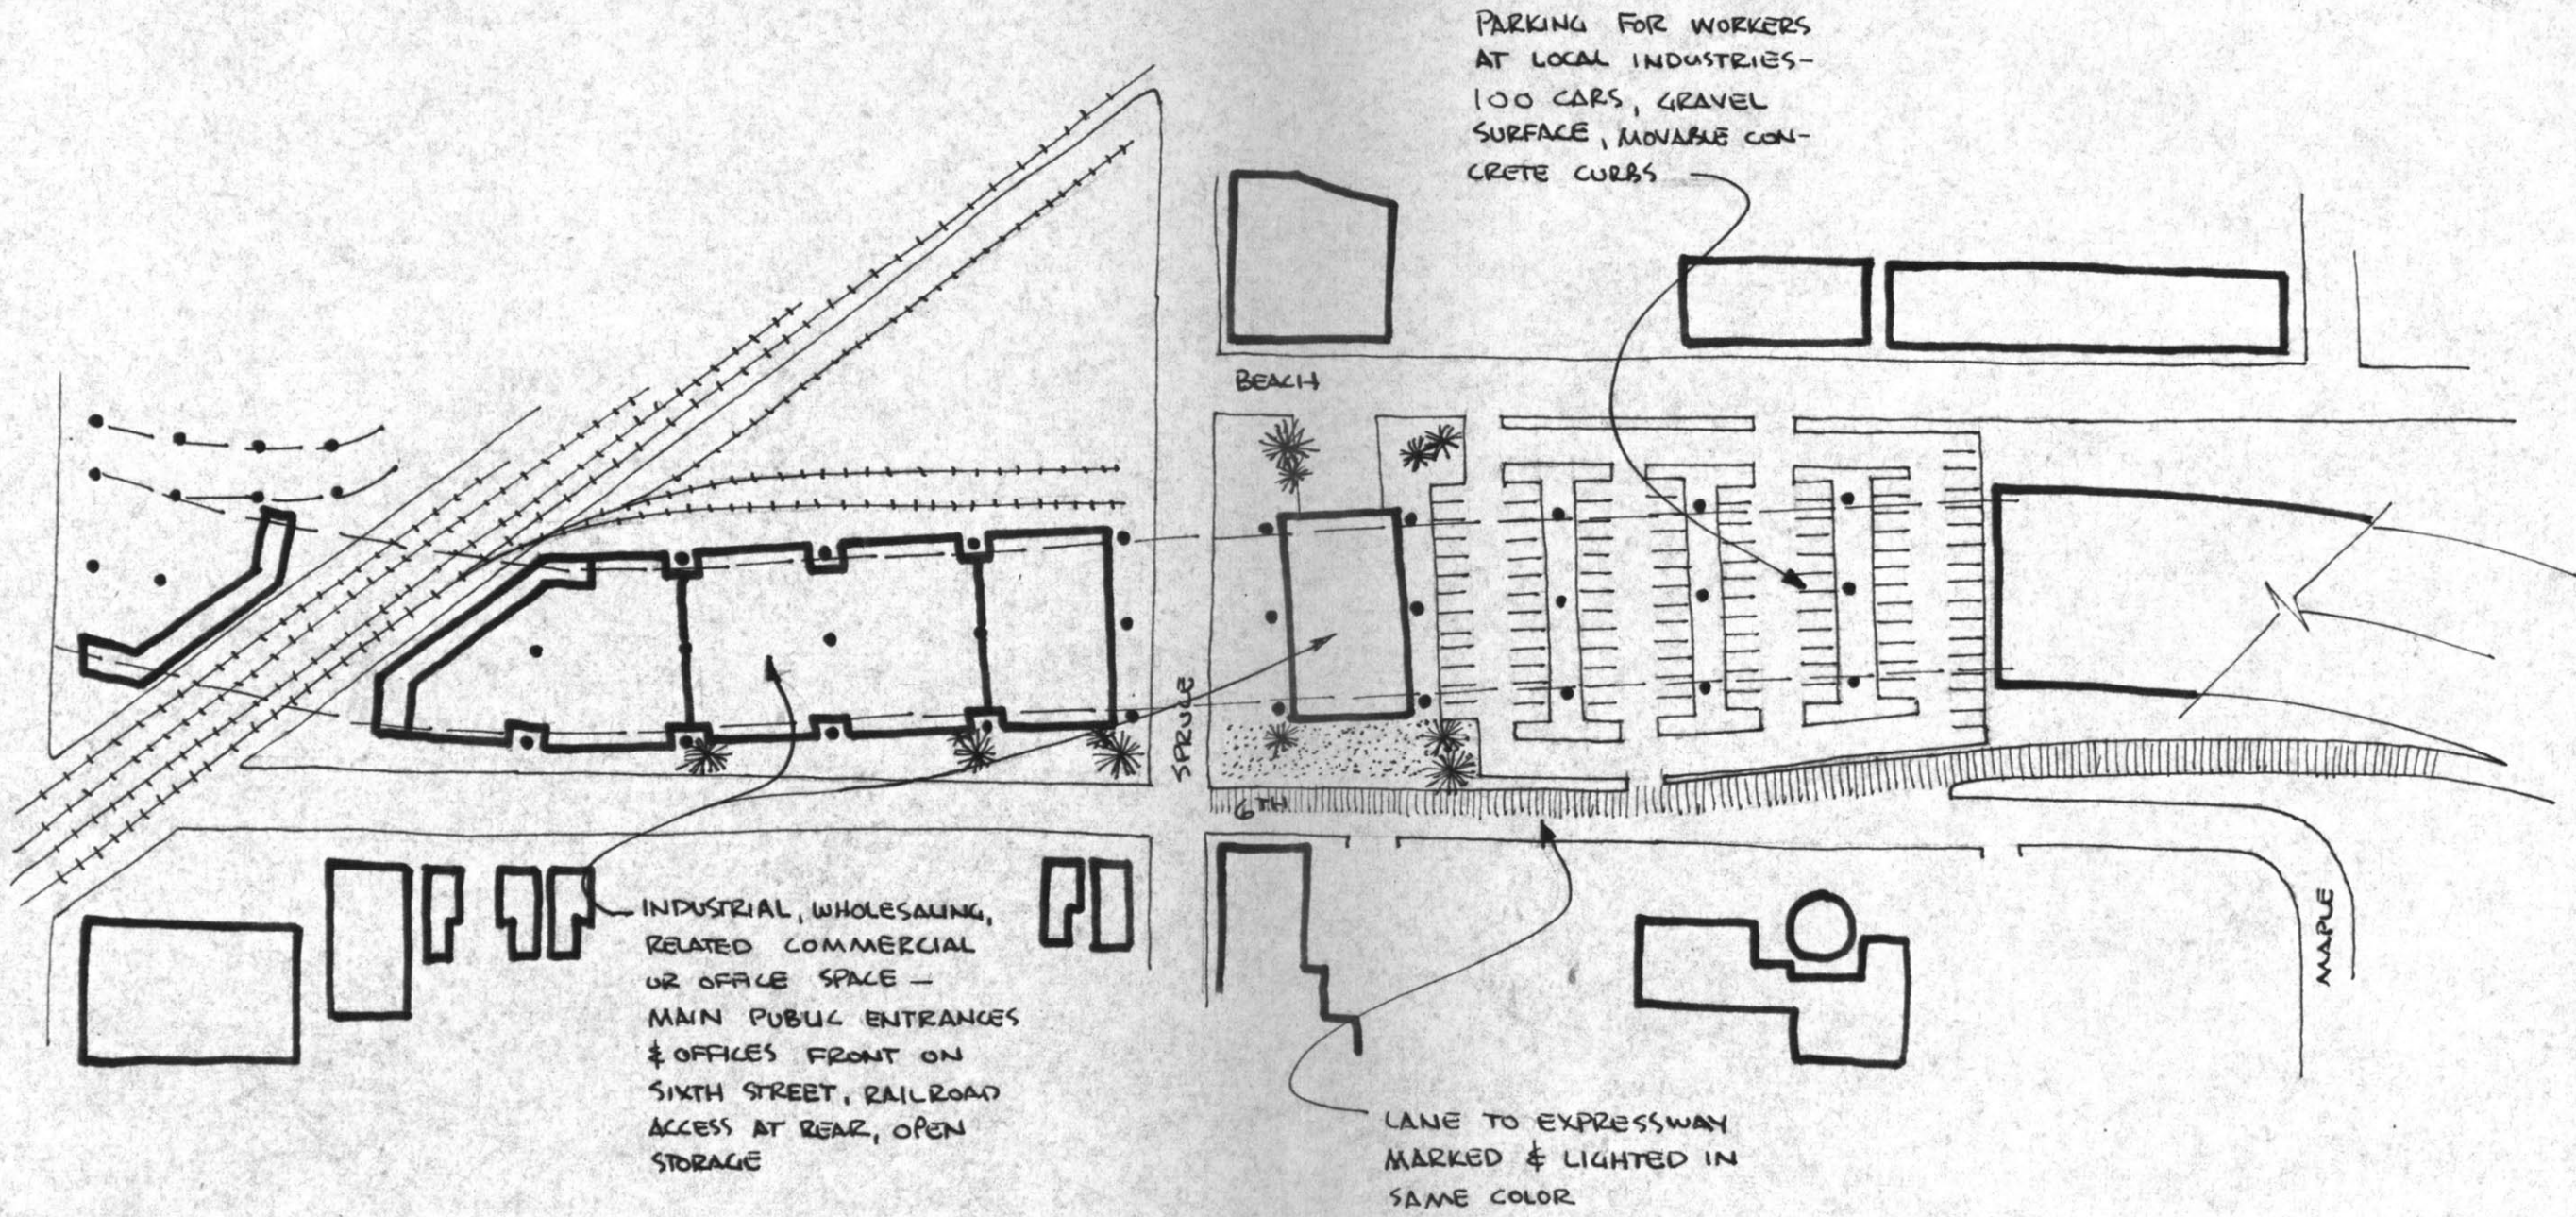 PARKING FOR WORKERS
AT LOCAL INDUSTRIES-
100 CARS, GRAVEL
SURFACE, MOVABLE CON-
CRETE CURBS
BEACH
SPRUCE
6TH
MAPLE
INDUSTRIAL, WHOLESALING,
RELATED COMMERCIAL
OR OFFICE SPACE —
MAIN PUBLIC ENTRANCES
& OFFICES FRONT ON
SIXTH STREET, RAILROAD
ACCESS AT REAR, OPEN
STORAGE
LANE TO EXPRESSWAY
MARKED & LIGHTED IN
SAME COLOR